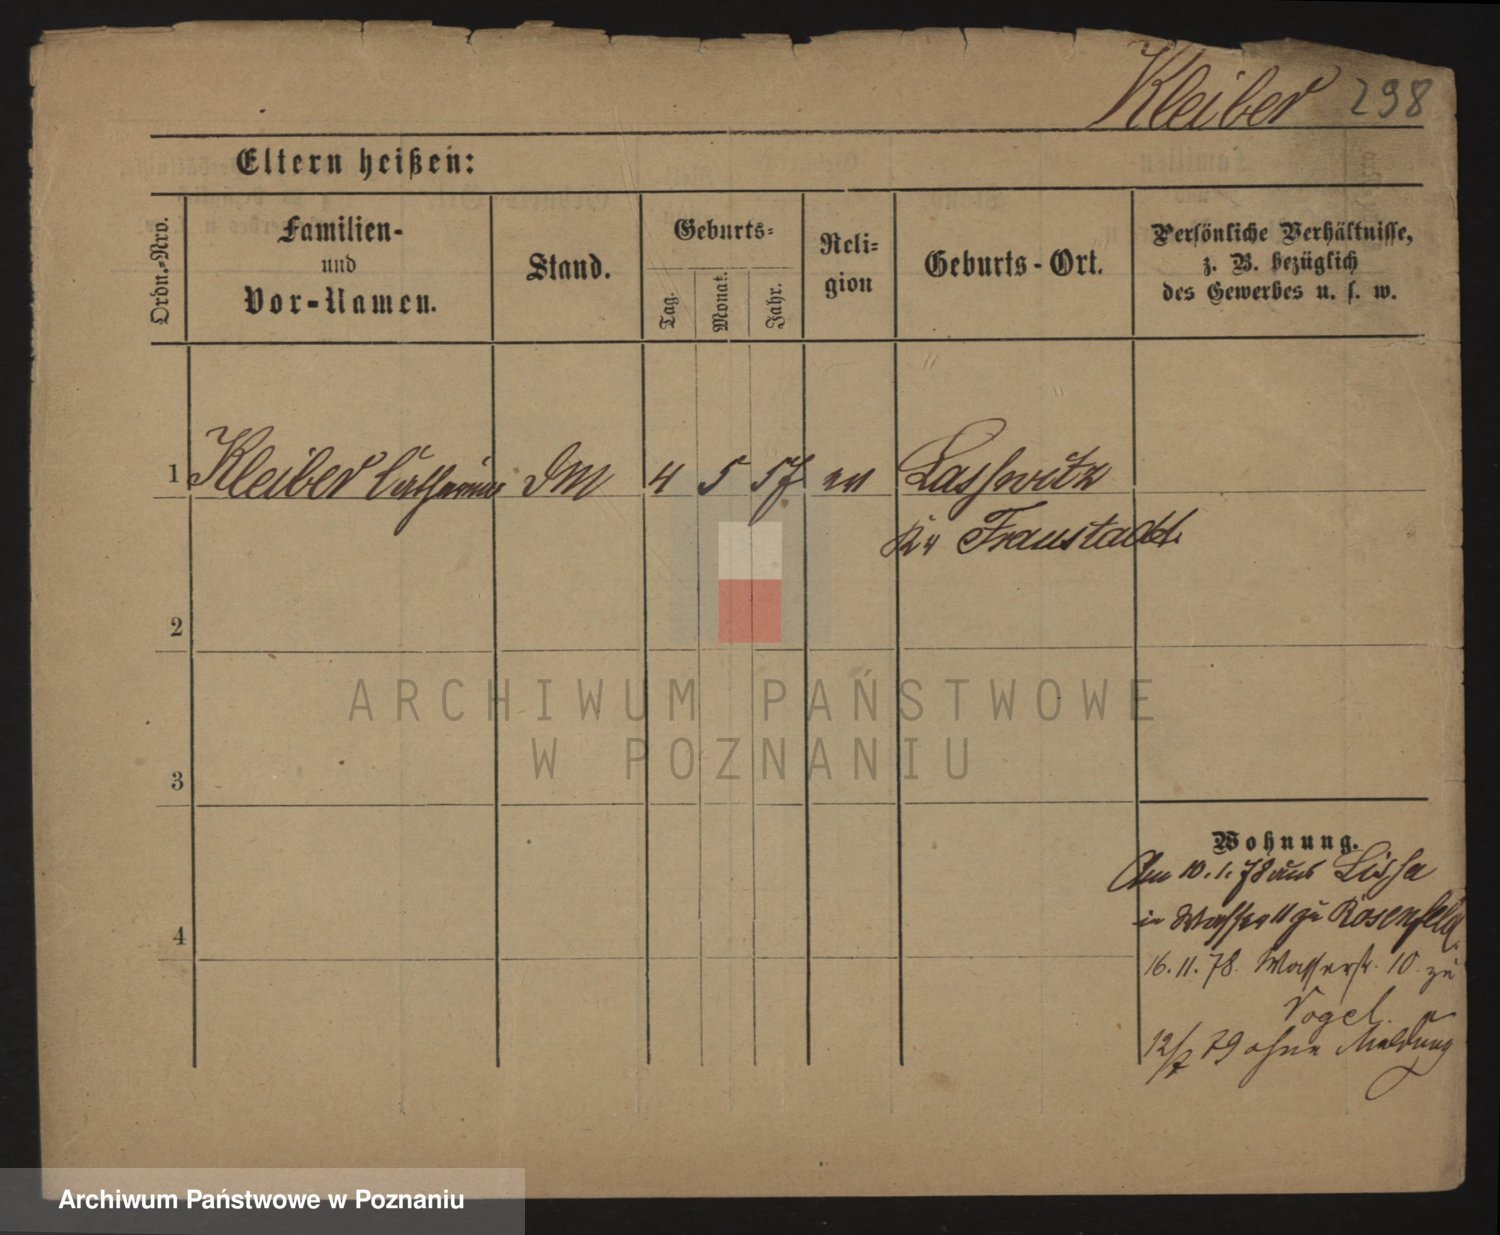 Kleiber 298
Eltern heißen:
Ordn.-Nro.
Familien-
und
Vor-Namen.
Stand.
Geburts-
Tag.
Monat.
Jahr.
Reli-
gion
Geburts-Ort.
Persönliche Verhältnisse,
z. B. bezüglich
des Gewerbes u. s. w.
1 Kleiber Catharina DM 4 5 57 ev Lasswitz
Kr Fraustadt
2
3
4
Wohnung.
Am 10.1.78 aus Lissa
in Wasser 11 zu Rosenfeld.
16.11.78. Wasserstr. 10 zu
Vogel.
12/7 79 ohne Meldung
ARCHIWUM PAŃSTWOWE
W POZNANIU
Archiwum Państwowe w Poznaniu